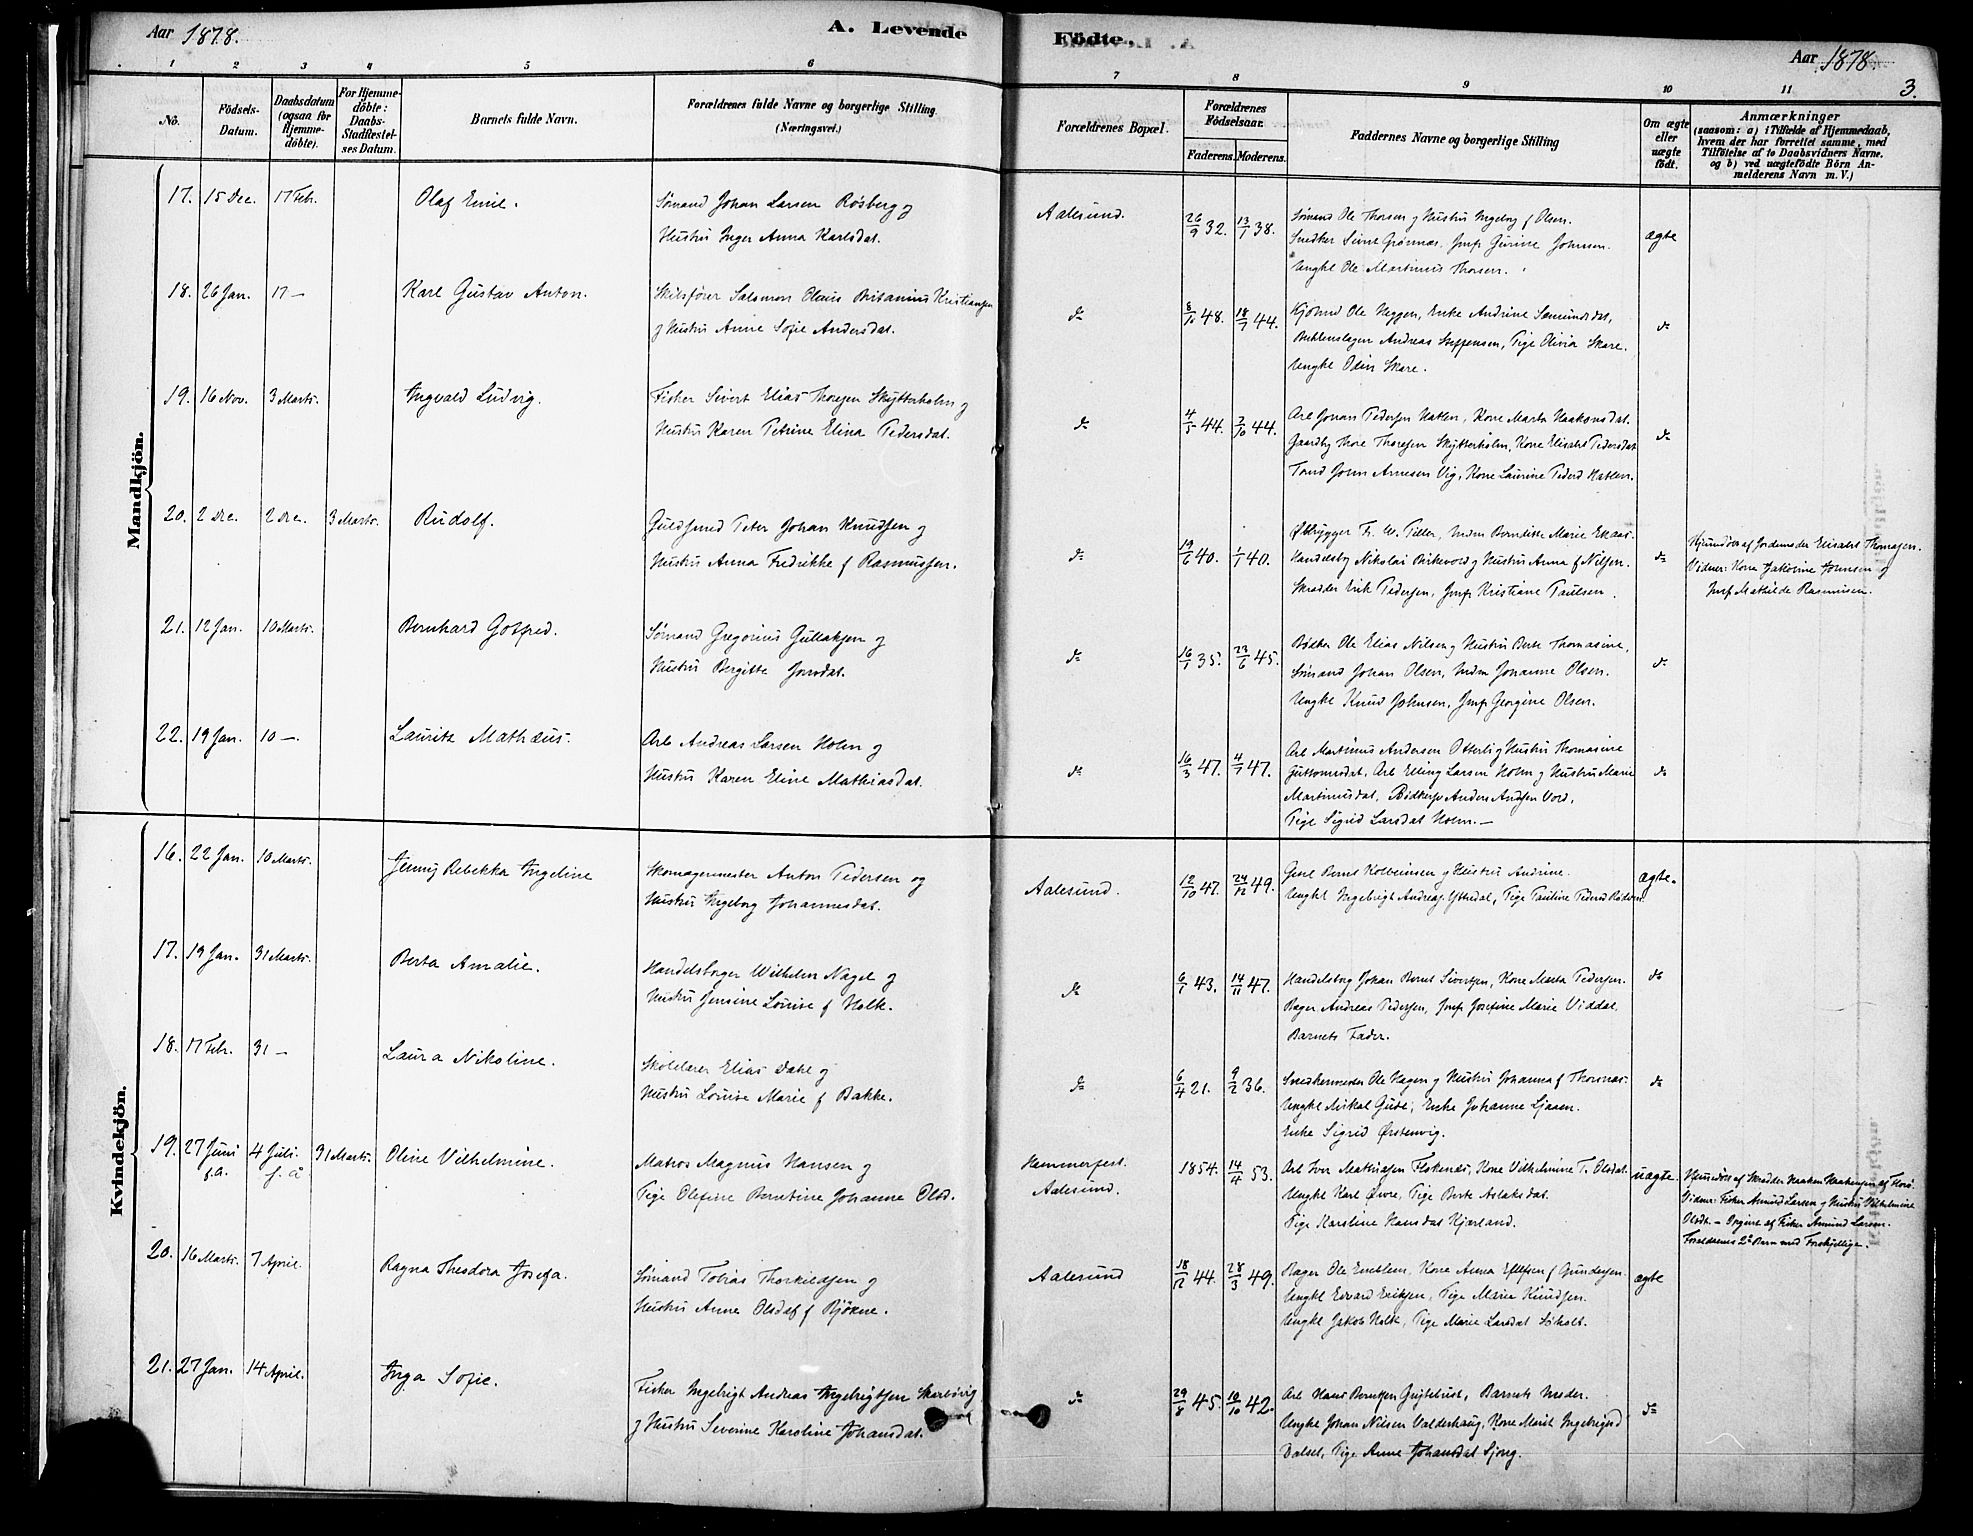 Aar 1878. A. Levende Födte. Aar 1878. 3.
1 2 3 4 5 6 7 8 9 10 11
No.
Födsels-
Datum.
Daabsdatum
(ogsaa for
Hjemme-
döbte).
For Hjemme-
döbte:
Daabs-
Stadfæstel-
ses Datum.
Barnets fulde Navn.
Forældrenes fulde Navne og borgerlige Stilling
(Næringsvei.)
Forældrenes Bopæl.
Forældrenes
Födselsaar.
Faderens. Moderens.
Faddernes Navne og borgerlige Stilling
Om ægte
eller
uægte
födt.
Anmærkninger
(saasom: a) i Tilfælde af Hjemmedaab,
hvem der har forrettet samme, med
Tilföielse af to Daabsvidners Navne.
og b) ved uægtefödte Börn An-
melderens Navn m. V.)
Mandkjön.
17. 15 Dec. 17 Febr. Olaf Emil.
Sömand Johan Larsen Røsberg og
Hustru Inger Anna Karlsdat.
Aalesund. 26/9 32. 13/1 38.
Sömand Ole Thorsen og Hustru Ingeborg f Olsen.
Snedker Sivert Grönnæs. Jmf Gurine Johnsen.
Ungkl Ole Martinus Thorsen.
ægte
18. 26 Jan. 17 — Karl Gustav Anton.
Skibsförer Salomon Olaus Britanius Kristiansen
og Hustru Anne Sofie Andersdat.
do 48. 18/7 44.
Ole Heggen, Enke Andrine
Andreas Steffensen, Pige Olivia Skare.
Ungkl Olin Skare.
do
19. 16 Nov. 3 Marts. Ingvald Ludvig.
Fisker Sivert Elias Thoresen Skytterholm og
Hustru Karen Petrine Elina Pedersdat.
do 4/5 44. 3/10 44.
Arb Johan Pedersen Hatlen, Kone Marta Haakonsdat.
Gaardbg Thore Thoresen Skytterholm, Kone Elisabet Pedersdat
John Arnesen Vig, Kone Laurine Pedersd Hatlen.
do
20. 2 Dec. 2 Dec. 3 Marts Rudolf.
Guldsmed Peter Johan Knudsen og
Hustru Anna Fredrikke f Rasmussen.
do 19/6 40. 1/1 40.
Ölbrygger Fr. W. Piller, Mdm Berndikte Marie
Handelsbg Nikolai Birkevold og Hustru Anna f Nilsen.
Skrædder Erik Pedersen, Jmf Kristiane Paulsen.
do
Hjemdöbt af Jordemoder Elisabet Thomasen.
Vidner: Kone Jakobine Johnsen og
Jmf Mathilde Rasmussen.
21. 12 Jan. 10 Marts. Bernhard Gotfred.
Sömand Gregorius Gullaksen og
Hustru Bergitte Jonsdat.
do 16/1 35. 23/6 45.
Bödker Ole Elias Nilsen og Hustru Berte Thomasine,
Sömand Johan Olsen, Mdm Johanne Olsen.
Ungkl Knud Johnsen, Jmf Georgine Olsen.
do
22. 19 Jan. 10 — Lauritz Mathæus.
Arb Andreas Larsen Holm og
Hustru Karen Eline Mathiasdat.
do 16/3 47. 4/7 47.
Arb Martinus Andersen Otterli og Hustru Thomasine
Guttormsdat, Arb Elling Larsen Holm og Hustru Marie
Martinusdat, Anders
Pige Sigrid Larsdat Holm. —
do
Kvindekjön.
16. 22 Jan. 10 Marts. Jenny Rebekka Ingeline
Skomagermester Anton Pedersen og
Hustru Ingeborg Johannesdat.
Aalesund. 12/10 47. 24/12 49.
Bernt Kolbeinsen og Hustru Andrine.
Ungkl Ingebrigt Andreas Yttredal, Pige Pauline
ægte.
17. 19 Jan. 31 Marts. Berta Amalie.
Handelsborger Wilhelm Nagel og
Hustru Jensine Louise f Holk.
do 6/1 43. 14/11 47.
Handelsborg Johan Bernt Sivertsen, Kone Marta Pedersen.
Bager Andreas Pedersen, Jmf Josefine Marie Viddal,
Barnets Fader.
do
18. 17 Febr. 31 — Laura Nikoline.
Skolelærer Elias Dahl og
Hustru Louise Marie f Bakke.
do 6/4 21. 9/2 36.
Snedkermester Ole Hagen og Hustru Johanna f Thorsnæs.
Ungkl Mikal Gude, Enke Johanne Ljaaen.
Enke Sigrid Ørstenvig.
do
19. 27 Juni f.A. 4 Juli. f. å 31 Marts. Oline Vilhelmine.
Matros Magnus Hansen og
Pige Olefine Berntine Johanne Olsd.
Hammerfest.
Aalesund.
1854. 14/4 53.
Arb Iver Mathiasen Flokenæs, Kone Vilhelmine T. Olsdat.
Ungkl Karl Øvre, Pige Berte Aslaksdat.
Pige Karoline Hansdat Kjærland.
uægte.
Hjemdöbt af Skrædder Haakon Haakensen af Florö.
Vidner: Fisker Amund Larsen og Hustru Vilhelmine
Olsdt. — Opgivet af Fisker Amund Larsen.
Forældrenes 2d Barn med Forskjellige.
20. 16 Marts. 7 April. Ragna Theodora Josefa.
Sömand Tobias Thorkildsen og
Hustru Anne Olsdat f Björne.
Aalesund 18/12 44. 28/3 49.
Bager Ole Emblem, Kone Anna f Gundersen.
Ungkl Edvard Eriksen, Pige Marie Knudsen.
Ungkl Jakob Holk, Pige Marie Larsdat Söholt.
ægte
21. 27 Jan. 14 April. Inga Sofie.
Fisker Ingebrigt Andreas Ingebrigtsen Skarbövig
og Hustru Severine Karoline Johansdat.
do 29/8 45. 10/10 42.
Arb Hans Berntsen, Barnets Moder.
Ungkl Johan Nilsen Valderhaug, Kone Marit Ingebrigtsd
Valset, Pige Anne Johansdat Sjong.
do